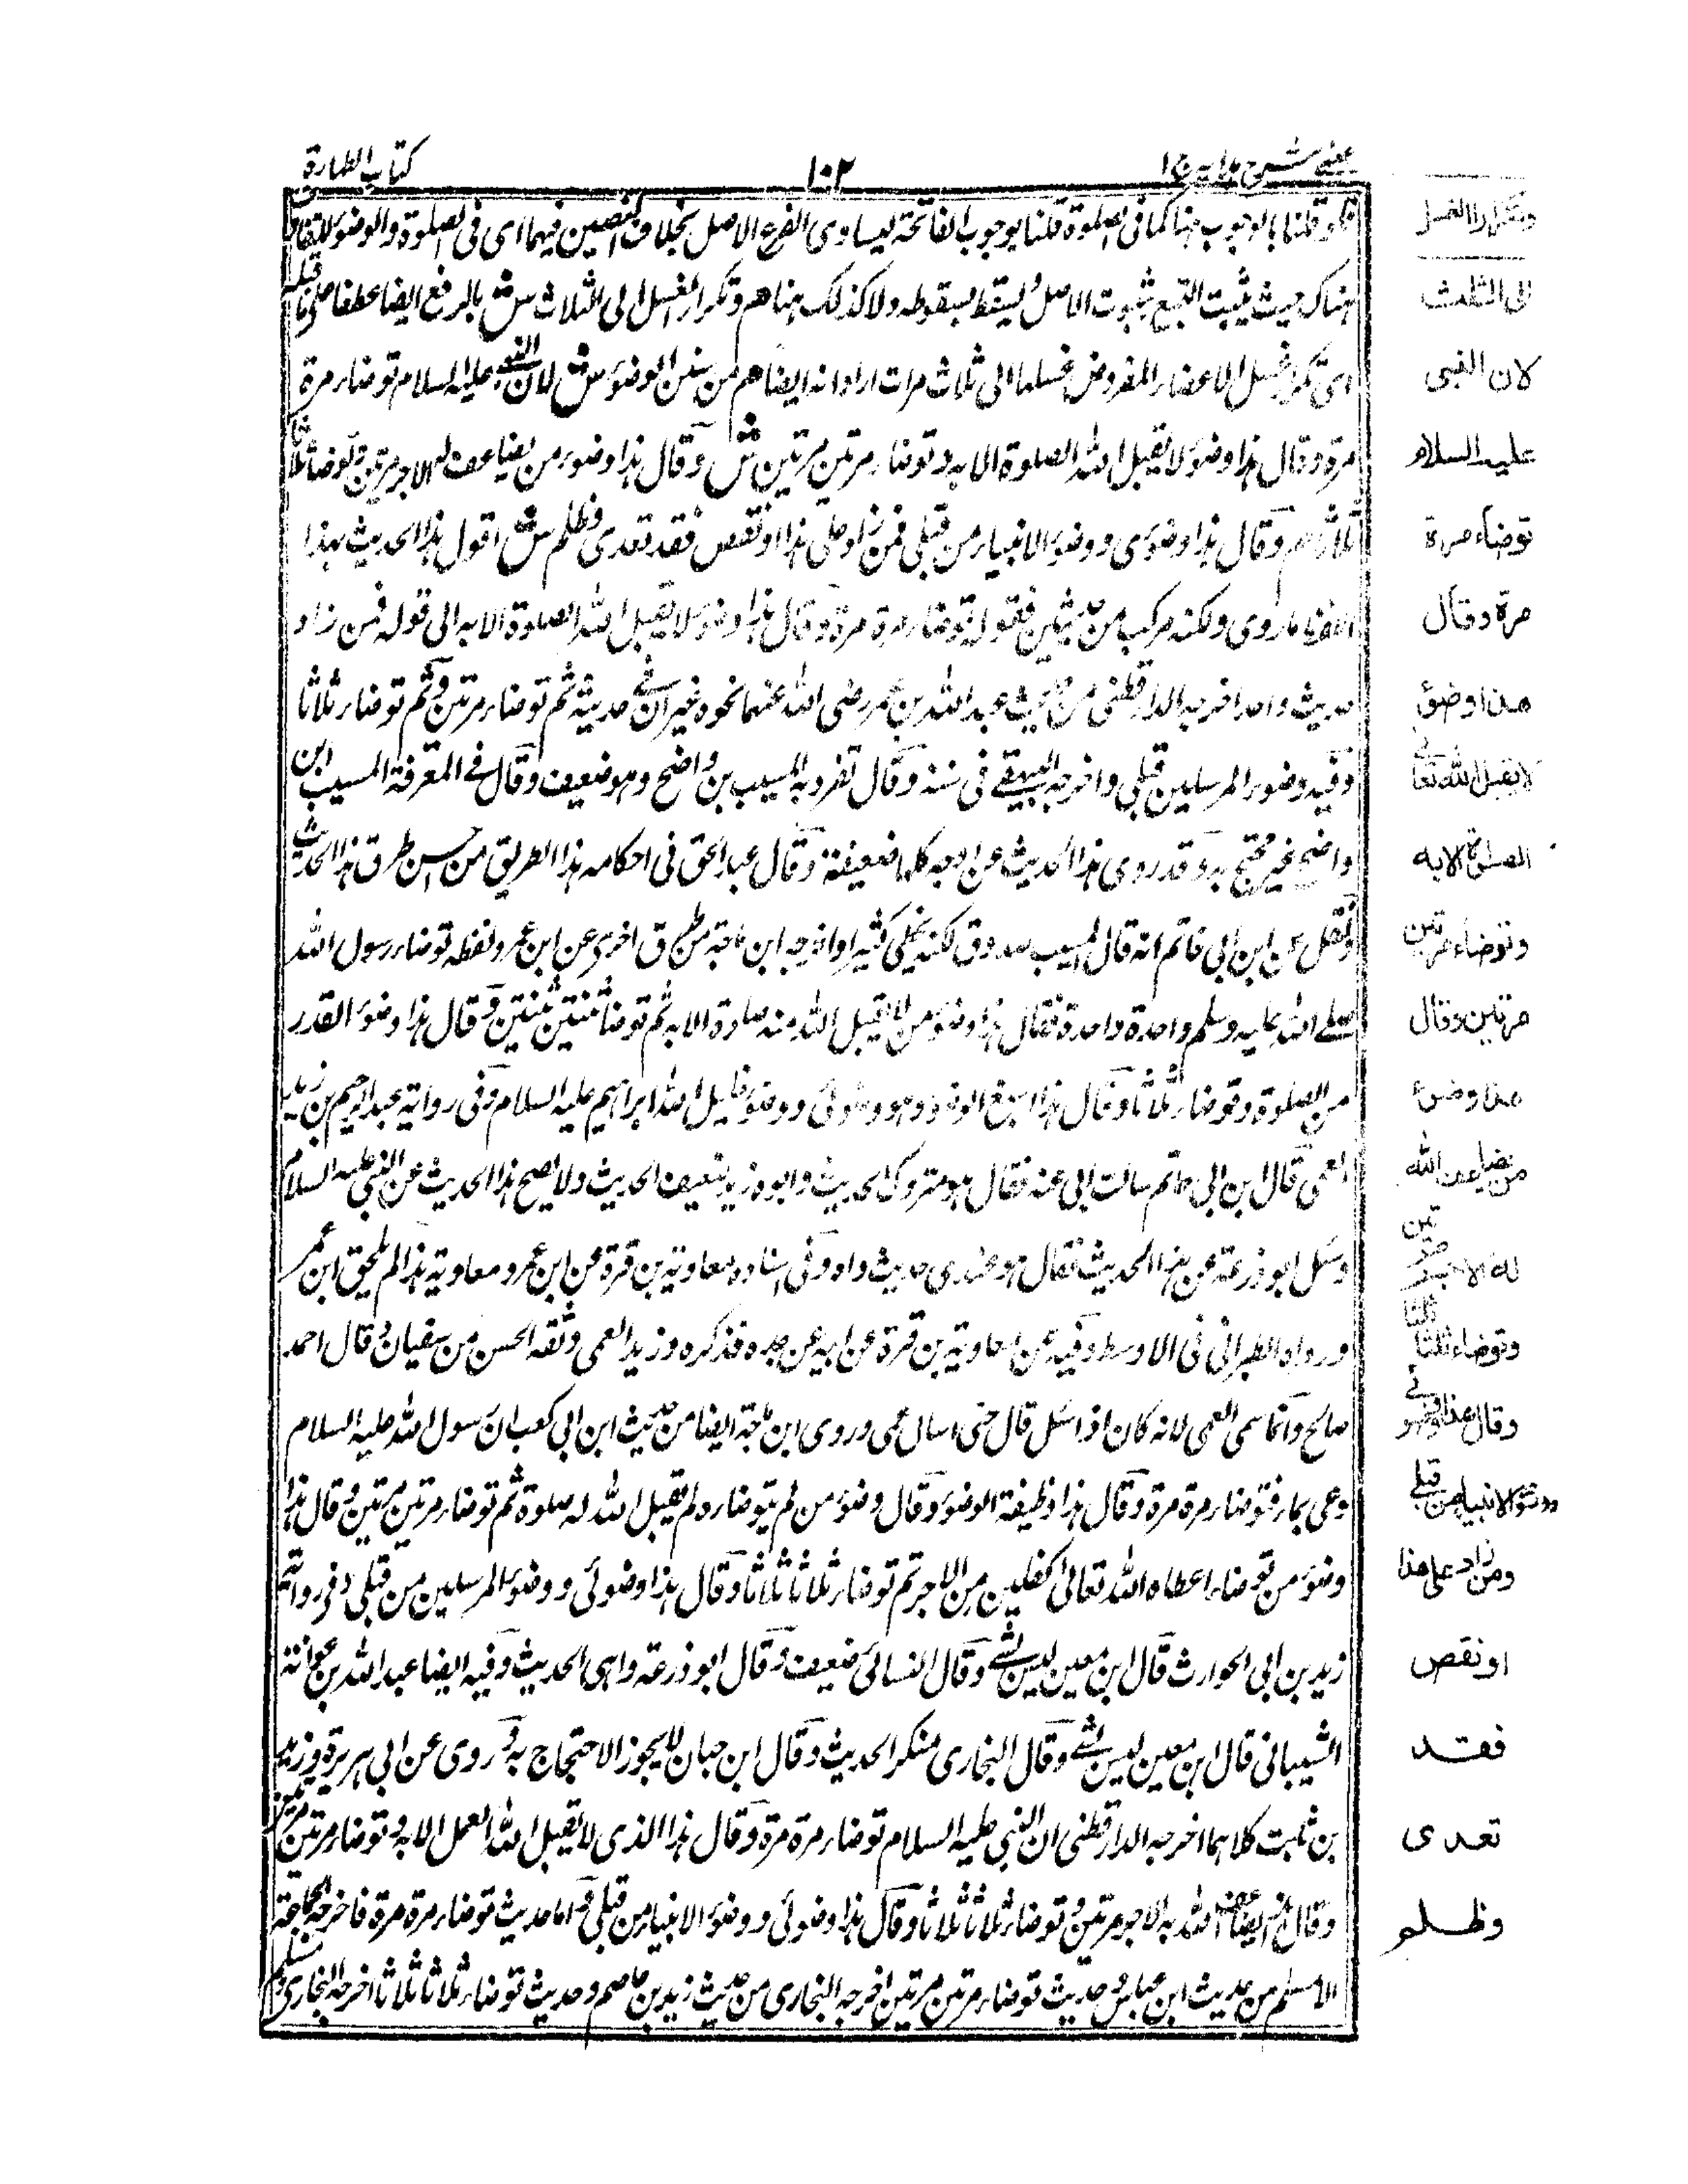 عینی شرح ہدایہ ج ۱
۱۰۲
کتاب الطہارة
فلو قلنا بالوجوب ہنا کما فی الصلوة قلنا بوجوب الفاتحة لیساوی الفرع الاصل بخلاف النصین فیہما ای فی الصلوة والوضوء
ہناک حیث یثبت التبع بثبوت الاصل یسقط بسقوطہ ولا کذلک ہنا ھم وتکرار الغسل الی الثلاث ش بالرفع ایضا عطفا علی ما قبلہ
ای تکرار غسل الاعضاء المفروض غسلہا الی ثلاث مرات اراد انہ ایضا ھم من سنن الوضوء ش لان النبی علیہ السلام توضاء مرة
مرة وقال ہذا وضوء لا یقبل اللہ الصلوة الا بہ وتوضاء مرتین مرتین ش وقال ہذا وضوء من یضاعف لہ الاجر مرتین وتوضا ثلاثا
ثلاثا ھم وقال ہذا وضوئی ووضوء الانبیاء من قبلی فمن زاد علی ہذا او نقص فقد تعدی وظلم ش اقول ہذا الحدیث بہذا
اللفظ ما روی ولکنہ مرکب من حدیثین فقولہ توضاء مرة مرة وقال ہذا وضوء لا یقبل اللہ الصلوة الا بہ الی قولہ فمن زاد
حدیث واحد اخرجہ الدارقطنی من حدیث عبد اللہ بن عمر رضی اللہ عنہما نحوہ غیر ان فی حدیثہ ثم توضاء مرتین وثم توضاء ثلاثا
وفیہ وضوء المرسلین قبلی واخرجہ البیہقے فی سننہ وقال تفرد بہ المسیب بن واضح وہو ضعیف وقال فے المعرفة المسیب ابن
واضح غیر محتج بہ وقد روی ہذا الحدیث عن اوجہ کلہا ضعیفة وقال عبد الحق فی احکامہ ہذا الطریق من احسن طرق ہذا الحدیث
ونقل عن ابن ابی حاتم انہ قال المسیب صدوق لکنہ یخطی کثیرا واخرجہ ابن ماجة من طرق اخری عن ابن عمر ولفظہ توضاء رسول اللہ
صلے اللہ علیہ وسلم واحدة واحدة فقال ہذا وضوء من لا یقبل اللہ منہ صلاوة الا بہ ثم توضا ثنتین ثنتین وقال ہذا وضوء القدر
من الصلوة وتوضاء ثلاثا وقال ہذا اسبغ الوضوء وہو وضوئی ووضوء خلیل اللہ ابراہیم علیہ السلام وفی روایة عبد الرحیم بن زید
العمی قال ابن ابی حاتم سالت ابی عنہ فقال ہو متروک الحدیث وابوہ زید ضعیف الحدیث ولا یصح ہذا الحدیث عن النبی علیہ السلام
وسئل ابو زرعة عن ہذا الحدیث فقال ہو عندی حدیث واہ وفی اسنادہ معاویة بن قرة عن ابن عمر ومعاویة ہذا لم یلحق ابن عمر
ورواہ الطبرانی فی الاوسط وفیہ عن معاویة بن قرة عن ابیہ عن جدہ فذکرہ وزید العمی وثقہ الحسن من سفیان وقال احمد
صالح وانما سمی العمی لانہ کان اذا سئل قال حتی اسال عمی وروی ابن ماجة ایضا من حدیث ابن ابی کعب ان رسول اللہ علیہ السلام
دعی بماء فتوضاء مرة مرة وقال ہذا وظیفة الوضوء وقال وضوء من لم یتوضاء ہ لم یقبل اللہ لہ صلوة ثم توضاء مرتین مرتین وقال ہذا
وضوء من توضاء اعطاہ اللہ تعالی کفلین من الاجر ثم توضاء ثلاثا ثلاثا وقال ہذا وضوئی ووضوء المرسلین من قبلی وفی روایتہ
زید بن ابی الحوارث قال ابن معین لیس بشے وقال النسائی ضعیف وقال ابو زرعة واہی الحدیث وفیہ ایضا عبد اللہ بن عوانة
الشیبانی قال ابن معین لیس بشے وقال البخاری منکر الحدیث وقال ابن حبان لا یجوز الاحتجاج بہ وروی عن ابی ہریرة وزید
بن ثابت کلاہما اخرجہ الدارقطنی ان النبی علیہ السلام توضاء مرة مرة وقال ہذا الذی لا یقبل اللہ العمل الا بہ وتوضاء مرتین مرتین
وقال ہذا یضاعف اللہ بہ الاجر مرتین وتوضاء ثلاثا ثلاثا وقال ہذا وضوئی ووضوء الانبیاء من قبلی واما حدیث توضاء مرة مرة فاخرجہ الجماعة
الا مسلم من حدیث ابن عباس وحدیث توضاء مرتین مرتین اخرجہ البخاری من حدیث زید بن عاصم وحدیث توضاء ثلاثا ثلاثا اخرجہ البخاری ومسلم
وتکرار الغسل
الی الثلث
لان النبی
علیہ السلام
توضاء مرة
مرة وقال
ھذا وضوء
لا یقبل اللہ تعالی
الصلوة الا بہ
وتوضاء مرتین
مرتین وقال
ھذا وضوء
من یضاعف اللہ
لہ الاجر مرتین
وتوضاء ثلثا ثلثا
وقال ھذا وضوئی
ووضوء الانبیاء من قبلی
ومن زاد علی ھذا
او نقص
فقد
تعدی
وظلم